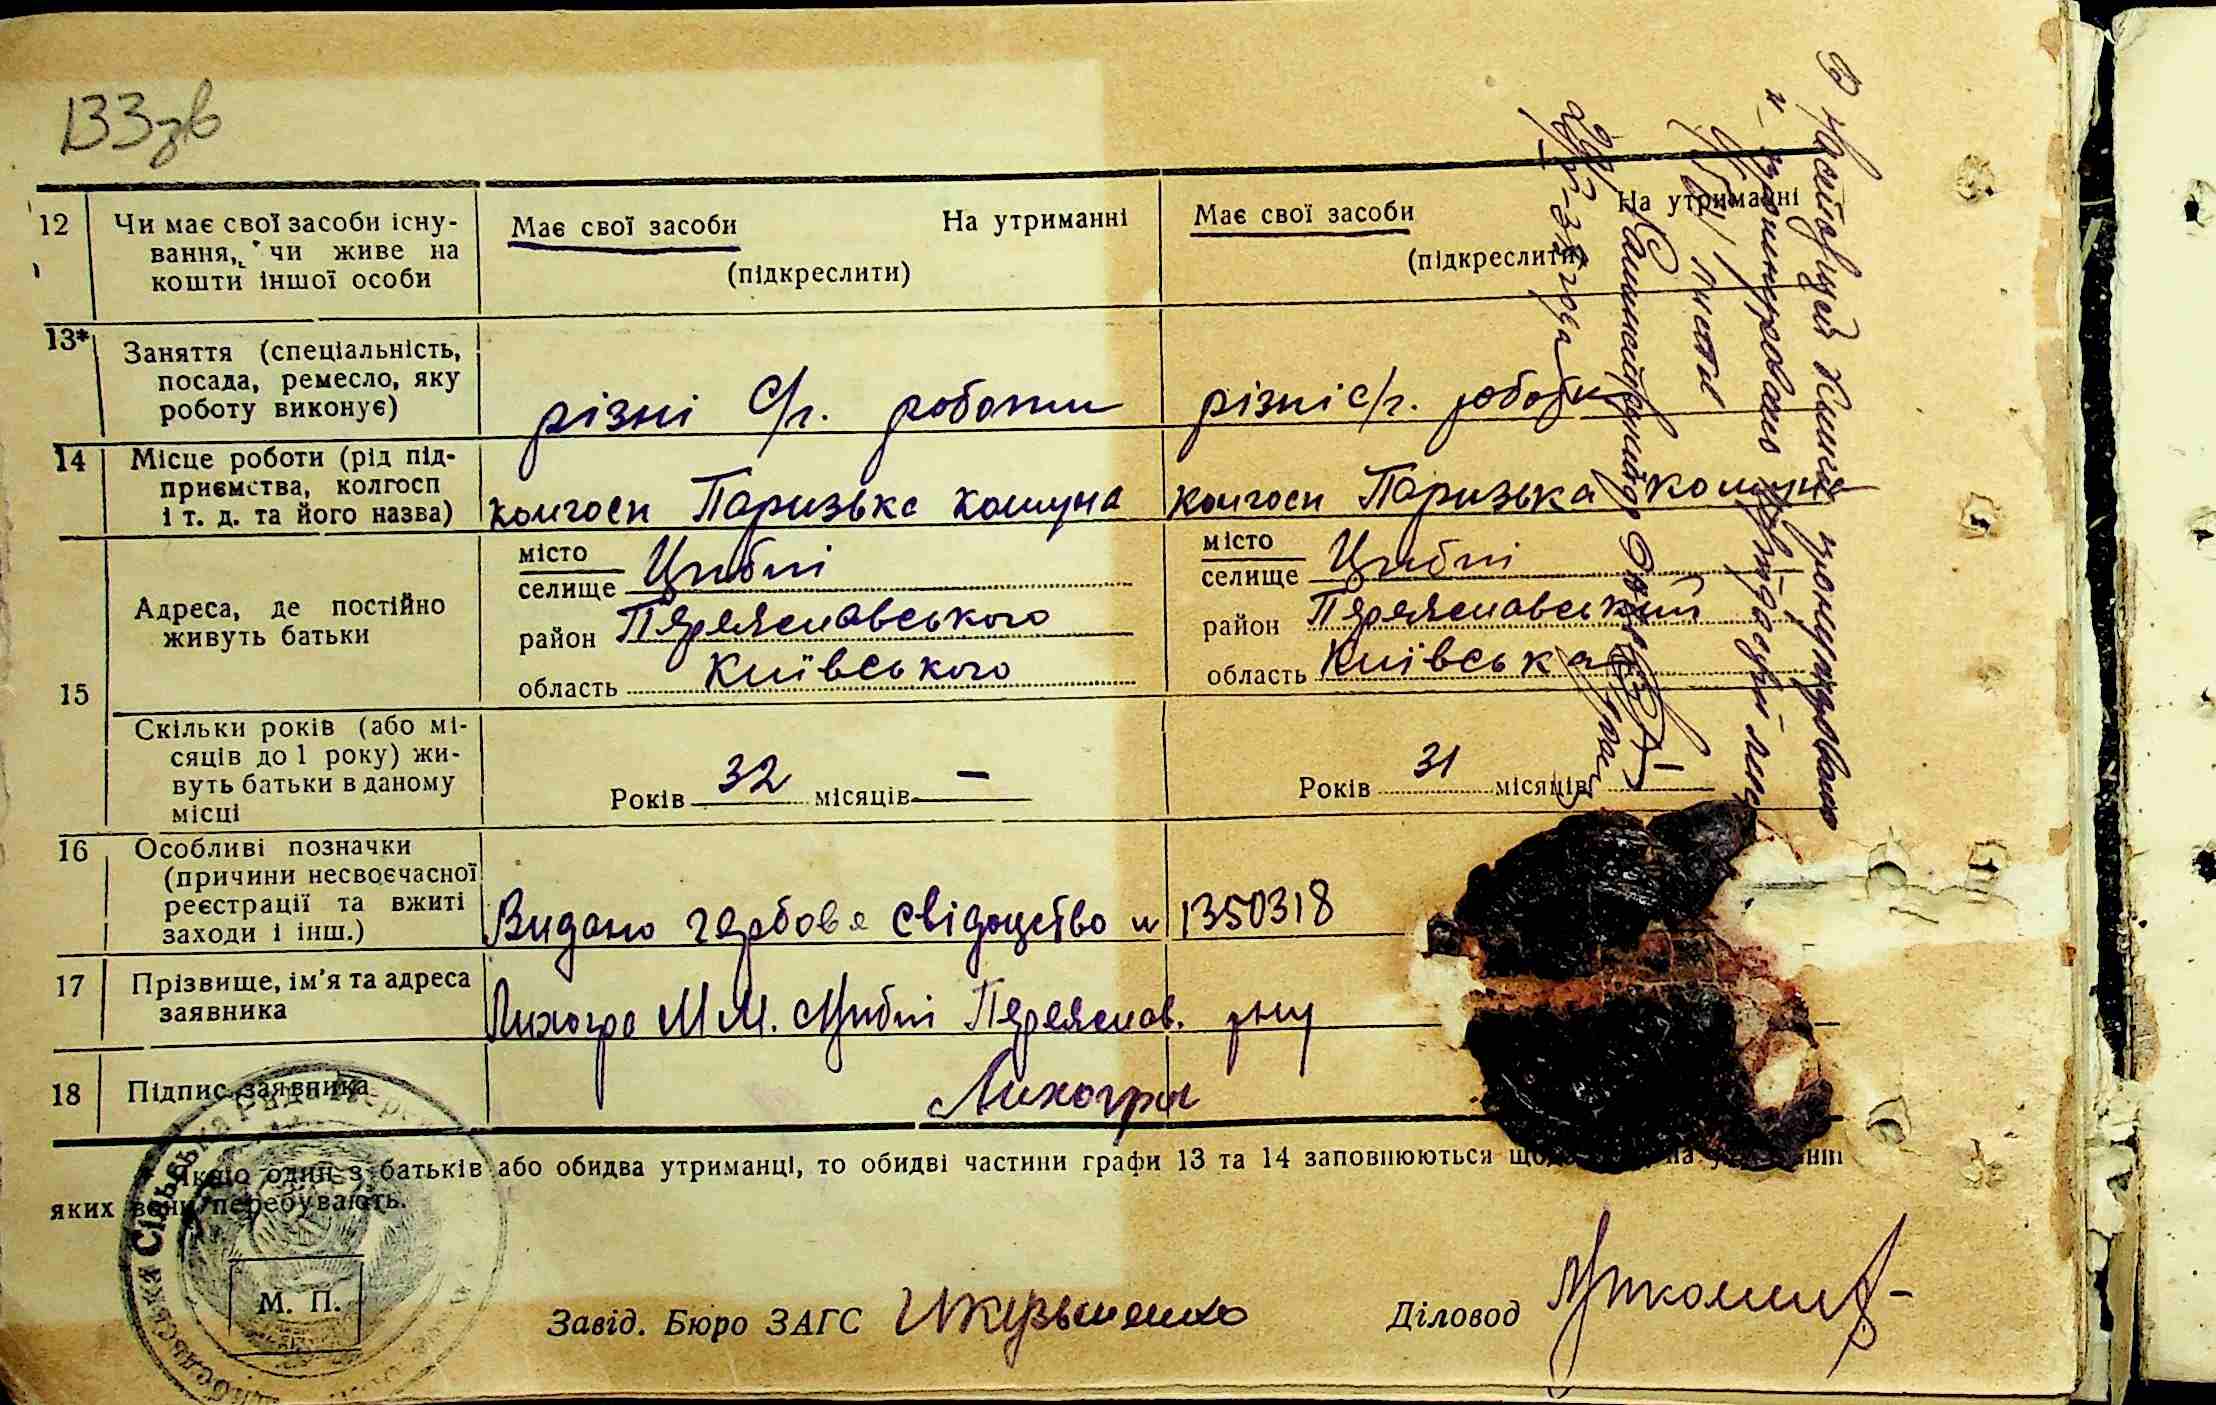 133зв
12 Чи має свої засоби існу-
вання, чи живе на
кошти іншої особи
Має свої засоби На утриманні
(підкреслити)
Має свої засоби На утриманні
(підкреслити)
13* Заняття (спеціальність,
посада, ремесло, яку
роботу виконує)
різні с/г. роботи
різні с/г. роботи
14 Місце роботи (рід під-
приємства, колгосп
і т. д. та його назва)
колгосп Паризька комуна
колгосп Паризька комуна
15 Адреса, де постійно
живуть батьки
місто
селище Циблі
район Переяславського
область Київського
місто
селище Циблі
район Переяславський
область Київська
Скільки років (або мі-
сяців до 1 року) жи-
вуть батьки в даному
місці
Років 32 місяців —
Років 31 місяців
16 Особливі позначки
(причини несвоєчасної
реєстрації та вжиті
заходи і інш.)
Видано гербове свідоцтво № 1350318
17 Прізвище, ім'я та адреса
заявника
Лихогра М М. Циблі Переяслав. р-ну
18 Підпис заявника
Лихогра
Якщо один з батьків або обидва утриманці, то обидві частини графи 13 та 14 заповнюються
яких вони перебувають.
М. П.
Завід. Бюро ЗАГС
Діловод
В настоящей книге пронумеровано
и
листы